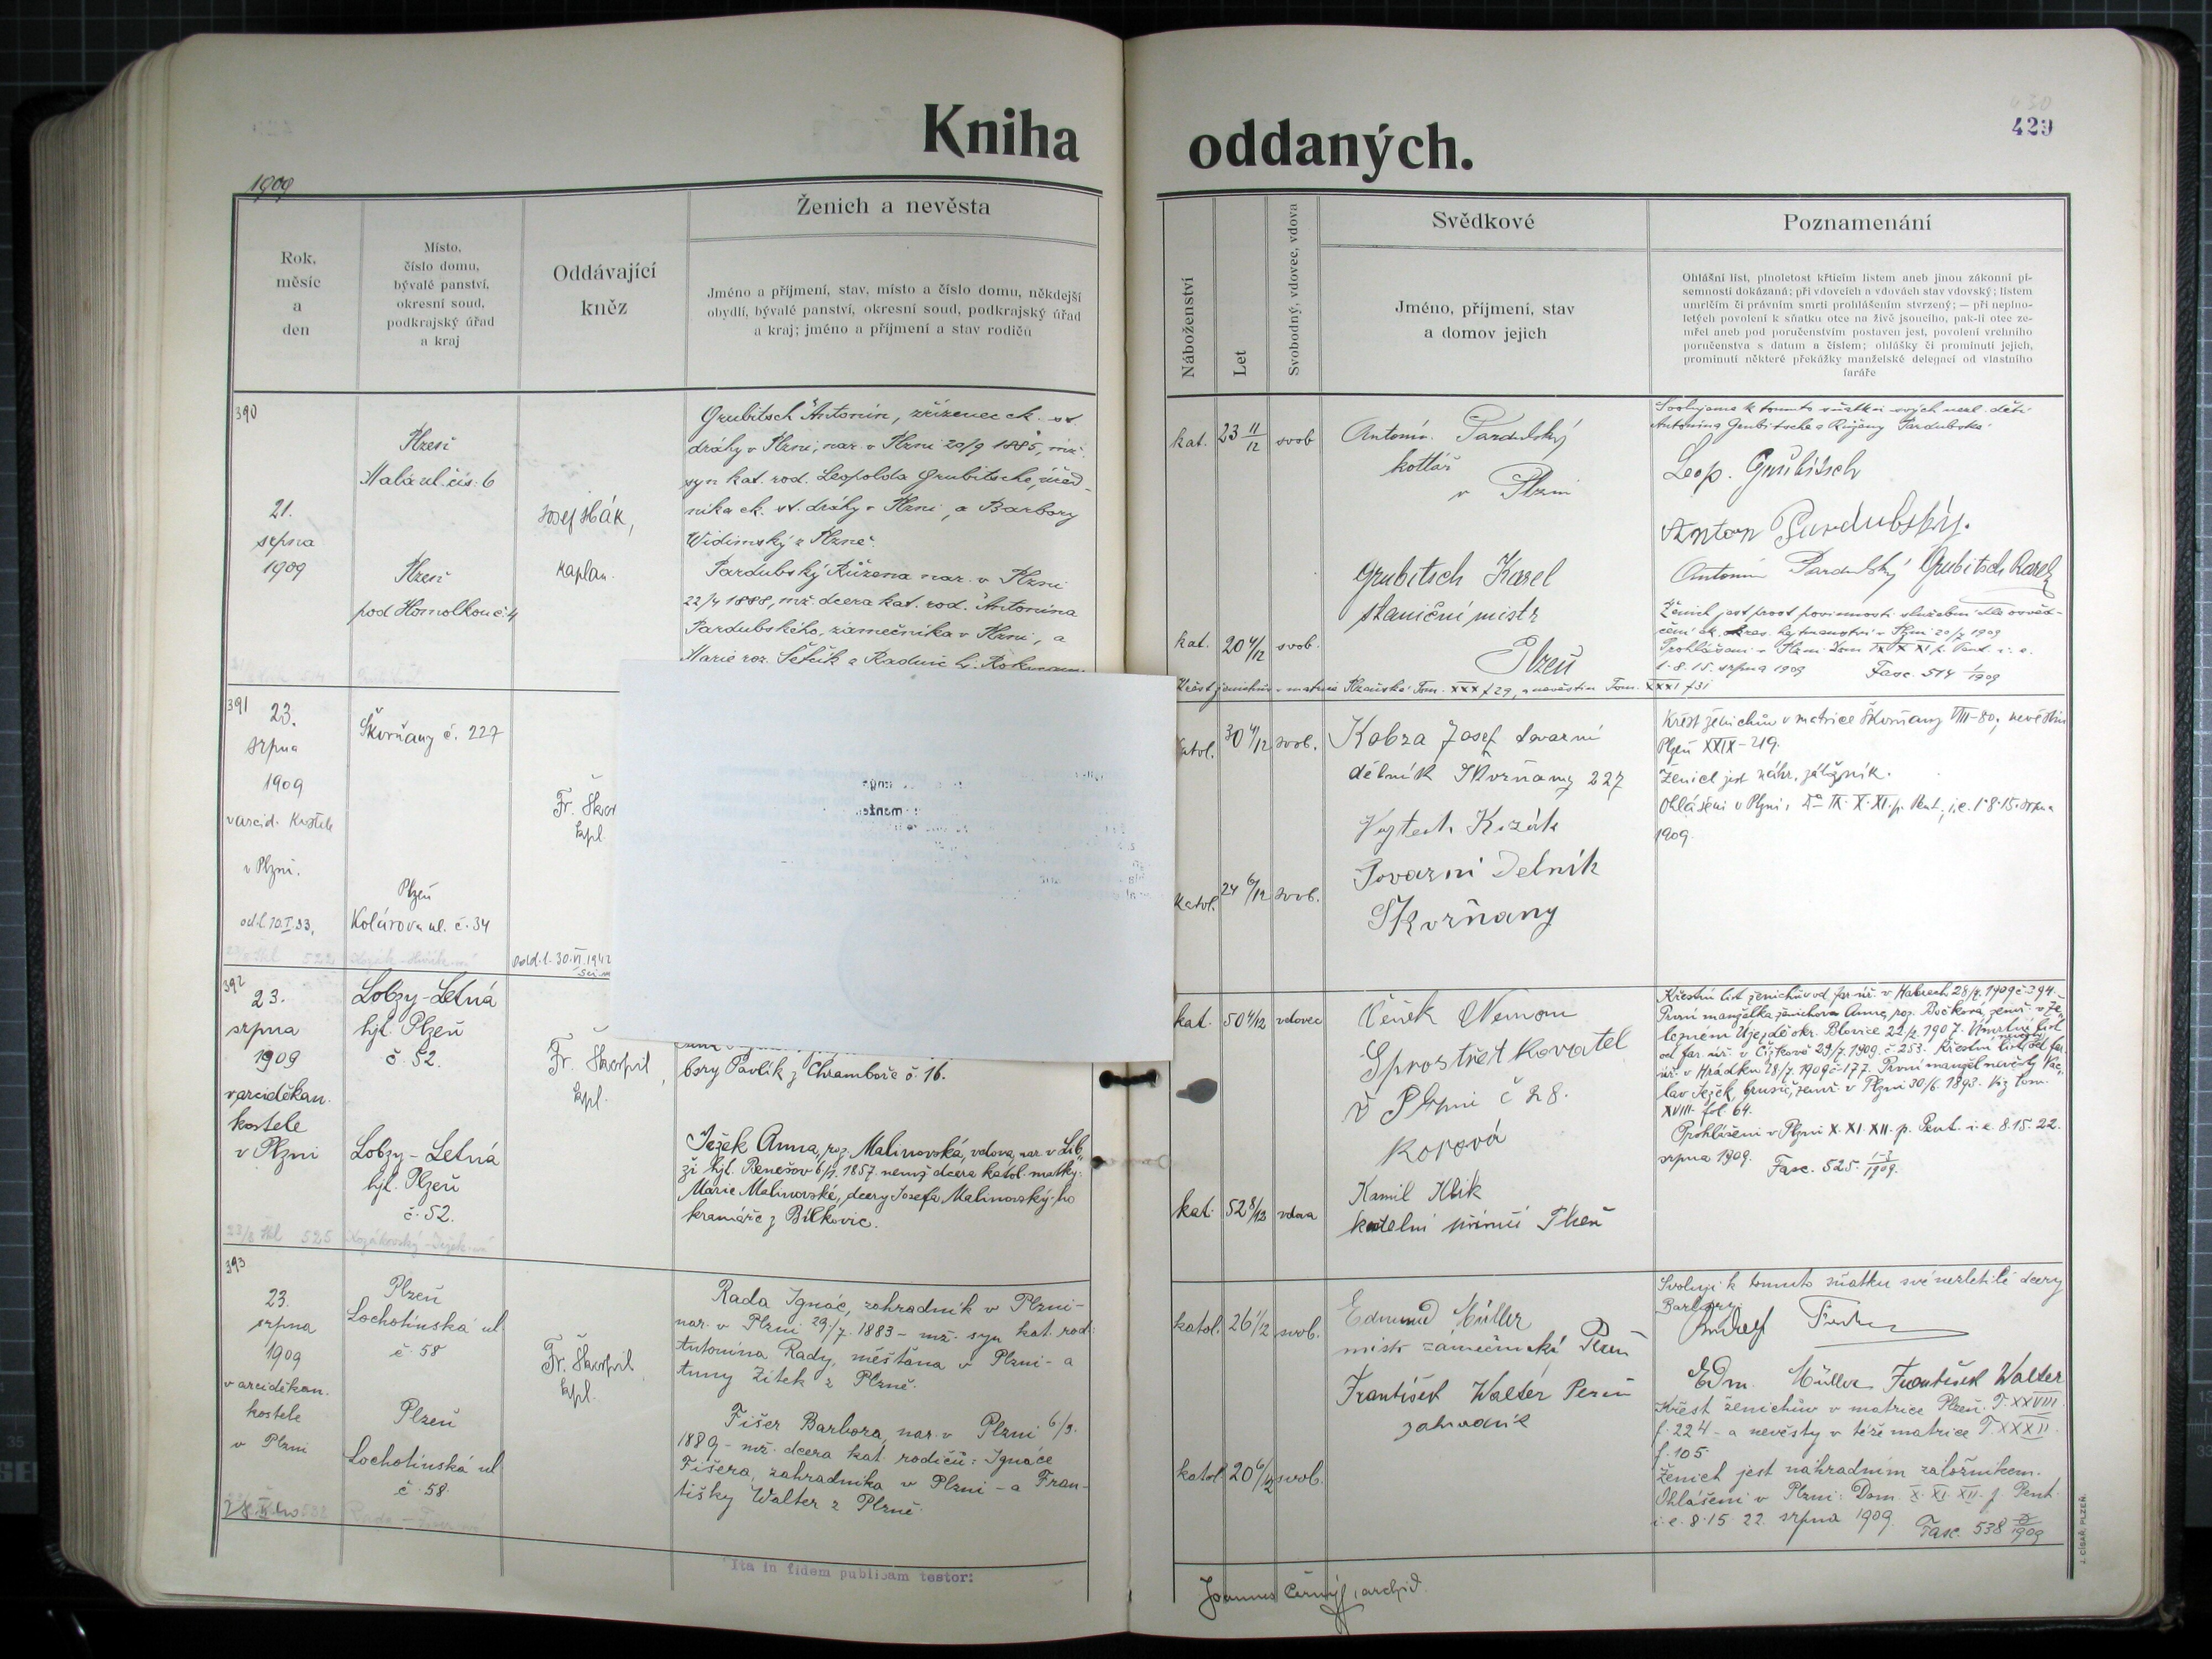 Kniha oddaných.
429
1909
Rok,
měsíc
a
den
Místo,
číslo domu,
bývalé panství,
okresní soud,
podkrajský úřad
a kraj
Oddávající
kněz
Ženich a nevěsta
Jméno a příjmení, stav, místo a číslo domu, někdejší
obydlí, bývalé panství, okresní soud, podkrajský úřad
a kraj; jméno a příjmení a stav rodičů
Náboženství
Let
Svobodný, vdovec, vdova
Svědkové
Jméno, příjmení, stav
a domov jejich
Poznamenání
Ohlášní list, plnoletost křticím listem aneb jinou zákonní pí-
semností dokázaná; při vdovcích a vdovách stav vdovský; listem
umrlčím či právním smrti prohlášením stvrzený; — při neplno-
letých povolení k sňatku otce na živě jsoucího, pak-li otec ze-
mřel aneb pod poručenstvím postaven jest, povolení vrchního
poručenstva s datum a číslem; ohlášky či prominutí jejich,
prominutí některé překážky manželské delegací od vlastního
faráře
390
21.
srpna
1909
Plzeň
Malá ul. čís. 6
Plzeň
pod Homolkou č. 4
Josef Hák,
kaplan.
Grubitsch Antonín, zřízenec ck. st.
dráhy v Plzni, nar. v Plzni 20/9 1885, mž.
syn kat. rod. Leopolda Grubitsche, úřed-
níka ck. st. dráhy v Plzni, a Barbory
Widimský z Plzně.
Pardubský Růžena nar. v Plzni
22/4 1888, mž. dcera kat. rod. Antonína
Pardubského, zámečníka v Plzni, a
Marie roz.
kat. 23 11/12 svob
kat. 20 4/12 svob.
Antonín Pardubský
kotlář
v Plzni
Grubitsch Karel
staniční mistr
Plzeň
Svolujeme k tomuto sňatku svých nezl. dětí
Antonína Grubitsche a Růženy Pardubské
Leop. Grubitsch
Anton Pardubský.
Antonín Pardubský Grubitsch Karel
Ženich jest prost povinnosti služební dle osvěd-
čení ck. okres. hejtmanství v Plzni 20/7 1909
Prohlášeni v Plzni Dom IX X XI p. Pent. i. e.
1. 8. 15. srpna 1909 Fasc. 514 1/1909
Křest ženichův v matrice Plzeňské Tom. XXX f 29, a nevěstin Tom. XXXI f 31
391
23.
srpna
1909
v arcid. kostele
v Plzni.
Škvrňany č. 227
Plzeň
Kolárova ul. č. 34
Fr. Škor
kpl.
odd. l. 30.VI.1942
katol. 30 4/12 svob.
katol. 24 6/12 svob.
Kobza Josef tovarní
dělník Škvrňany 227
Vojtech Kozák
Tovarní Delník
Škvrňany
Křest ženichův v matrice Škvrňany VIII-80, nevěstin
Plzeň XXIX-219.
Ženich jest náhr. záložník.
Ohlášeni v Plzni, Dom IX. X. XI. p. Pent., i. e. 1. 8. 15. srpna
1909.
392
23.
srpna
1909
v arciděkan.
kostele
v Plzni
Lobzy-Letná
hjt. Plzeň
č. 52.
Lobzy-Letná
hjt. Plzeň
č. 52.
Fr. Škorpil,
kpl.
bory Pavlík z Chramboře č. 16.
Ježek Anna, roz. Malinovská, vdova, nar. v Lib-
ži hjt. Benešov 6/1. 1857. nemž. dcera katol. matky:
Marie Malinovské, dcery Josefa Malinovský-ho
kramáře z Bílkovic.
kat. 50 4/12 vdovec
kat. 52 8/12 vdova
Čeněk Neman
Sprostřetkovatel
v Plzni č 28.
Kamil Hlik
kostelní Plzeň
Křestní list ženichův od far. úř. v 28/7. 1909 č. 294.
První manželka ženichova Anna, roz. Bočková, zemř. v Že-
lezném Újezdě okr. Blovice 22/2. 1907. Úmrtní list
od far. úř. v Čížkově 29/7. 1909. č. 253. Křestní list nevěsty od far.
úř. v Hrádku 28/7. 1909 č. 177. První manžel nevěsty Vác-
lav Ježek, brusič, zemř. v Plzni 30/6. 1893. Viz tom.
XVIII. fol. 64.
Prohlášeni v Plzni X. XI. XII. p. Pent. i. e. 8. 15. 22.
srpna 1909. Fasc. 525. 1-3/1909.
393
23.
srpna
1909
v arciděkan.
kostele
v Plzni
Plzeň
Lochotínská ul
č. 58
Plzeň
Lochotínská ul
č. 58.
Fr. Škorpil,
kpl.
Rada Ignác, zahradník v Plzni-
nar. v Plzni 29./7. 1883 - mž. syn kat. rod.:
Antonína Rady, měšťana v Plzni - a
Anny Zítek z Plzně.
Fišer Barbora, nar. v Plzni 6/3.
1889 - mž. dcera kat. rodičů: Ignáce
Fišera, zahradníka v Plzni - a Fran-
tišky Walter z Plzně.
katol. 26 1/12 svob.
katol 20 6/12 svob.
Edmund Müller
mistr zámečnický Plzeň
František Walter Plzeň
zahradník
Svoluji k tomuto sňatku své nezletilé dcery
Barbory.
Edm. Müller František Walter
Křest ženichův v matrice Plzeň. T. XXVIII.
f. 224 - a nevěsty v téže matrice T. XXXII.
f. 105.
Ženich jest náhradním záložníkem.
Ohlášeni v Plzni: Dom. X. XI. XII. p. Pent.
i. e. 8. 15. 22. srpna 1909. Fasc. 538
Ita in fidem publicam testor:
Joannes Černý, archid.
J. CÍSAŘ, PLZEŇ.